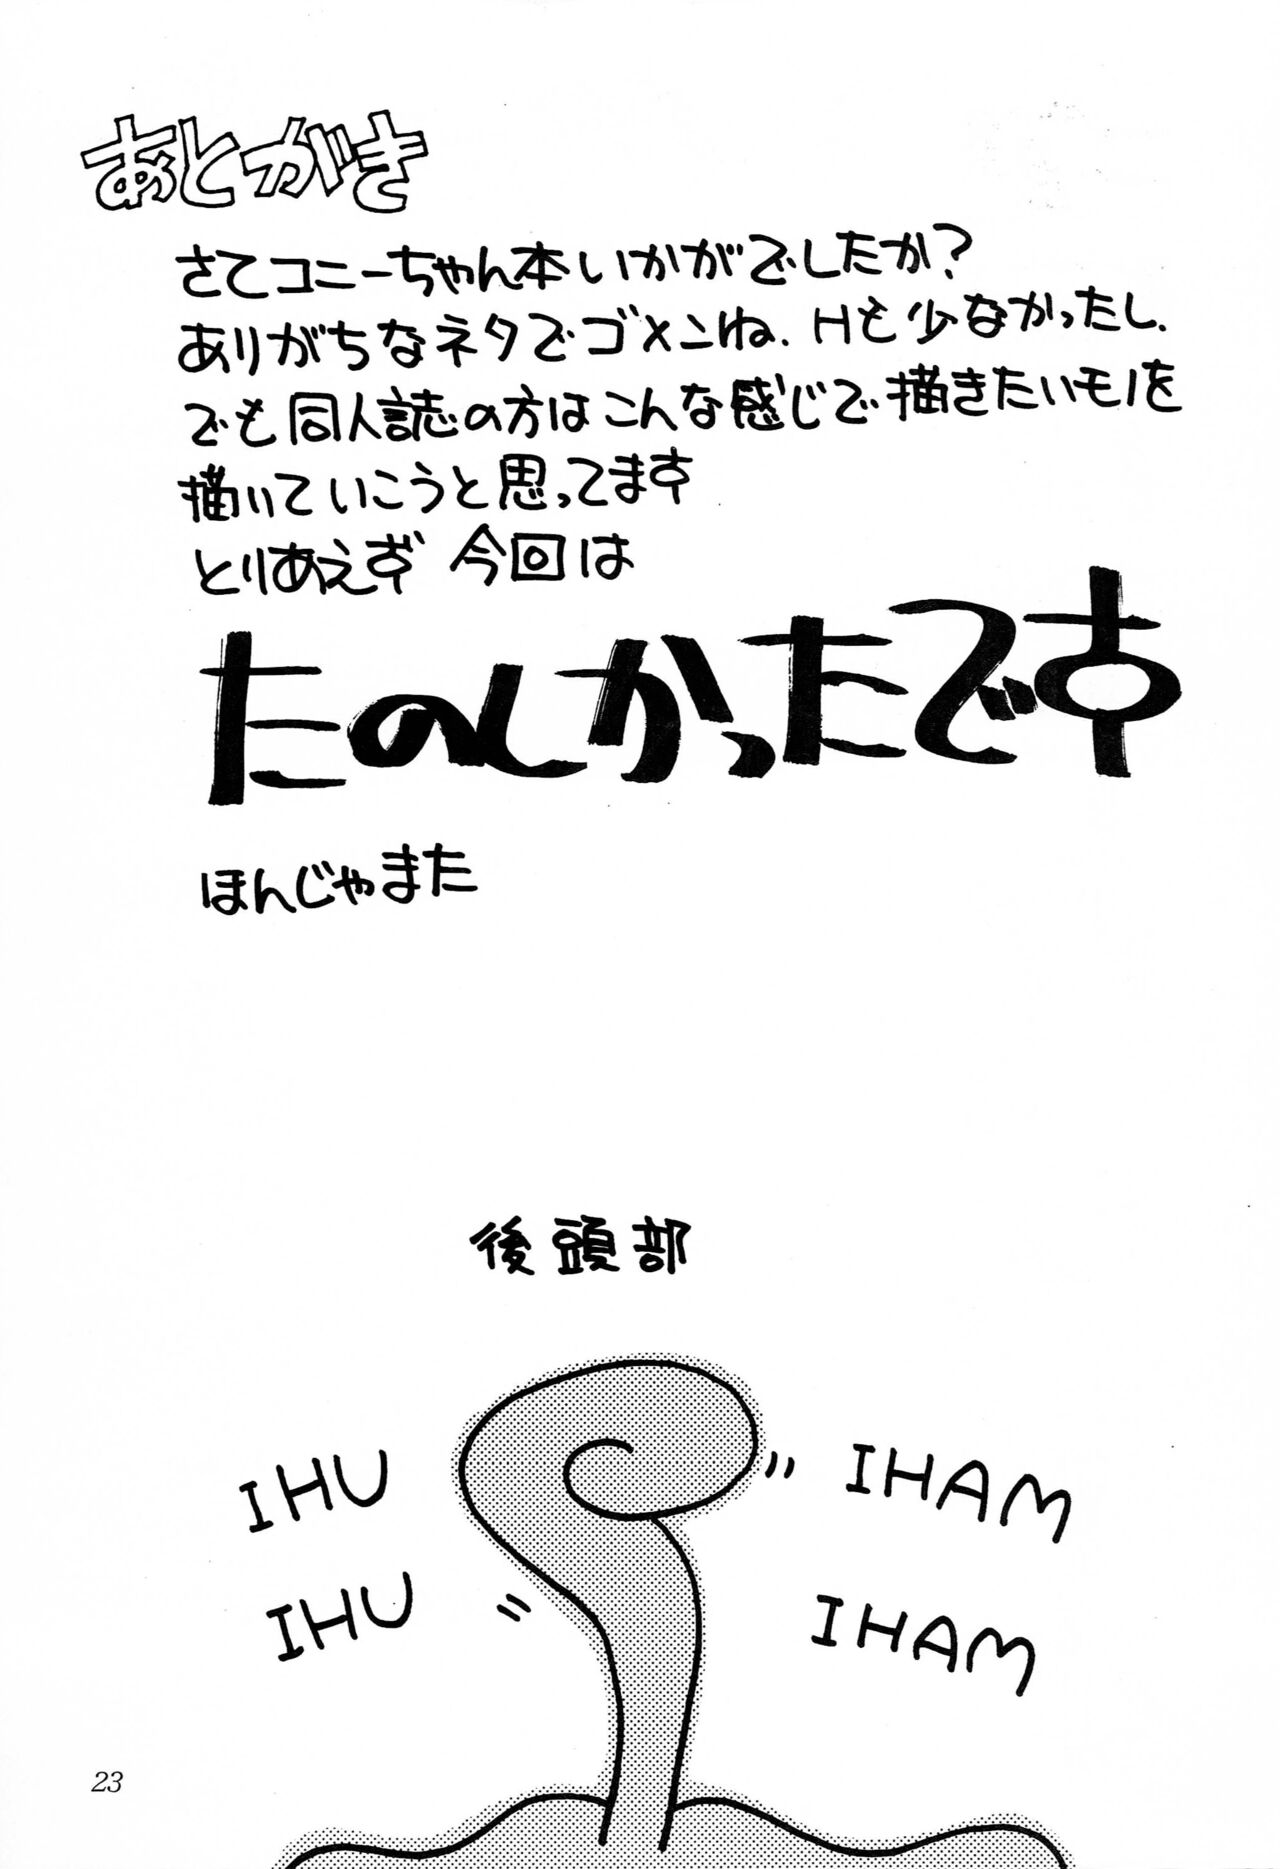 あとがき
さてコニーちゃん本いかがでしたか?
ありがちなネタでゴメンね、Hも少なかったし、
でも同人誌の方はこんな感じで描きたいモノを
描いていこうと思ってます
とりあえず今回は
たのしかったです
ほんじゃまた
後頭部
IHU
IHAM
IHU
IHAM
23